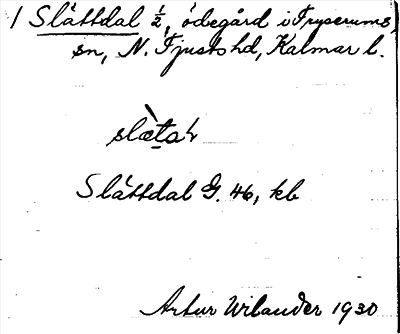 1 Slåttdal ½, ödegård i Tryserums
sn, N. Tjusts hd, Kalmar l.
Slåttdal G. 46, kb
Artur Wilander 1930